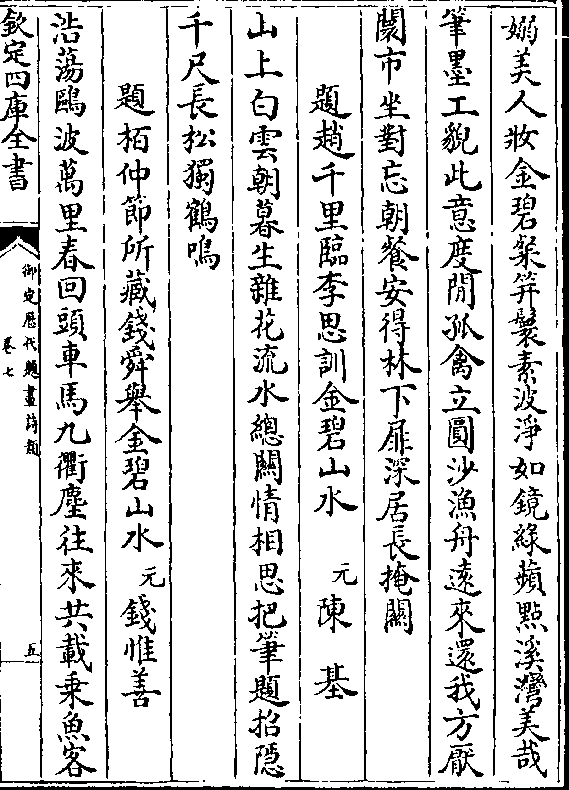 嫋美人妝金碧粲笄鬟素波淨如鏡綠蘋點溪灣美哉
筆墨工貌此意度閒孤禽立圓沙漁舟遠來還我方厭
闤市坐對忘朝餐安得林下扉深居長掩關
題趙千里臨李思訓金碧山水 元 陳基
山上白雲朝暮生雜花流水總關情相思把筆題招隱
千尺長松獨鶴鳴
題栢仲節所藏錢舜舉金碧山水 元 錢惟善
浩蕩鷗波萬里春回頭車馬九衢塵往來共載乗魚客
欽定四庫全書
御定歷代題畫詩類
卷七
五